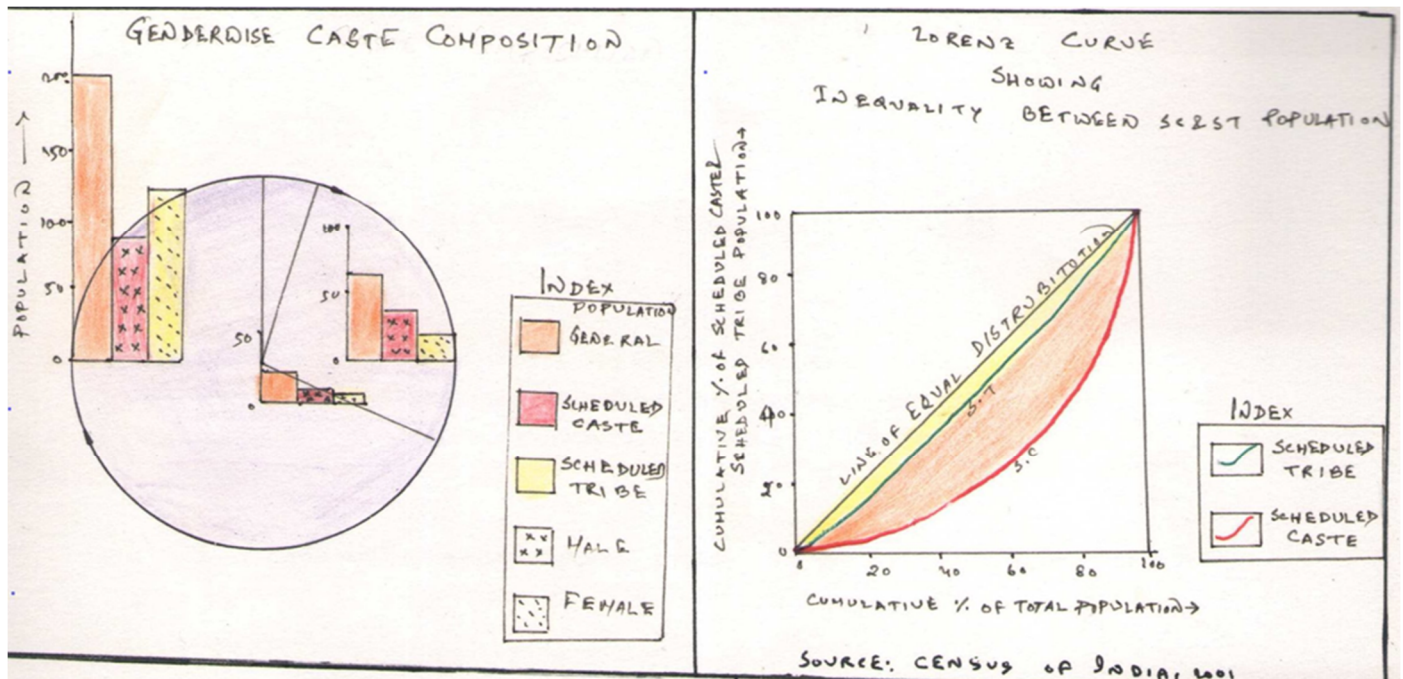 GENDERWISE CASTE COMPOSITION
POPULATION →
200
150
100
50
0
100
50
0
50
0
INDEX
POPULATION
GENERAL
SCHEDULED
CASTE
SCHEDULED
TRIBE
MALE
FEMALE
LORENZ CURVE
SHOWING
INEQUALITY BETWEEN SC&ST POPULATION
CUMULATIVE % OF SCHEDULED CASTE &
SCHEDULED TRIBE POPULATION→
100
80
60
40
20
0
LINE OF EQUAL DISTRUBITOTION
S.T
S.C
0 20 40 60 80 100
CUMULATIVE % OF TOTAL POPULATION→
INDEX
SCHEDULED
TRIBE
SCHEDULED
CASTE
SOURCE: CENSUS OF INDIA, 2001